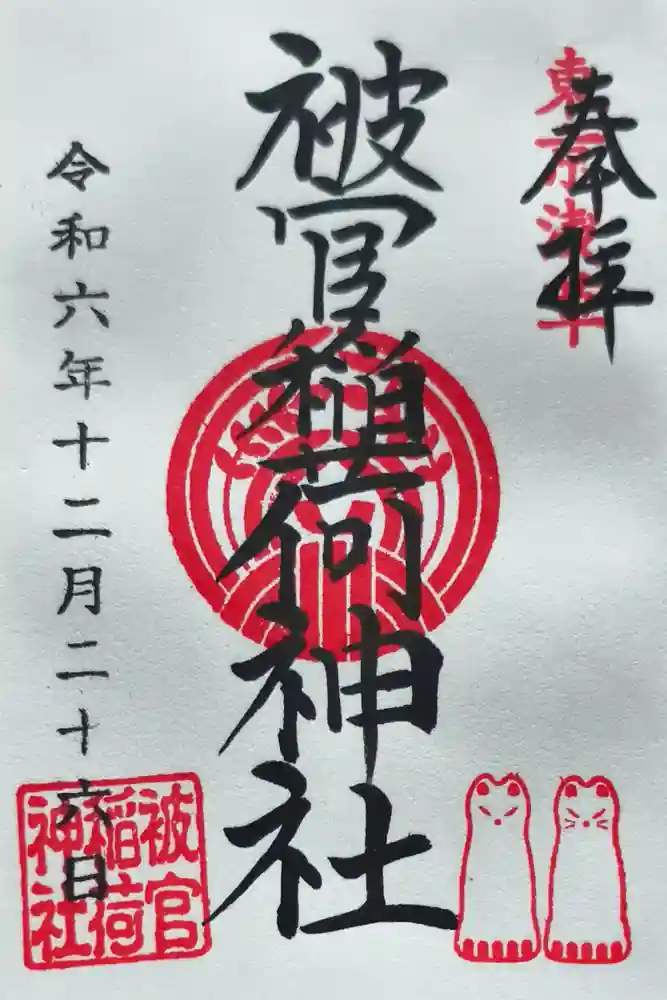 奉拝
東京浅草
被官稲荷神社
令和六年十二月二十六日
被官
稲荷
神社